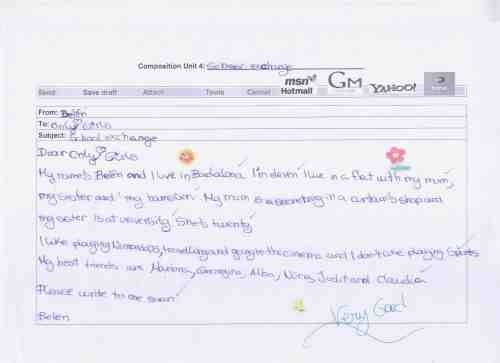 Composition Unit 4: School exchange
msn Hotmail GM YAHOO!
Send Save draft Attach Tools Cancel
From: Belén
To: Only Girls
Subject: School exchange
Dear Only Girls
My name's Belén and I live in Badalona. I'm eleven I live in a flat with my mum,
my sister and my hamster. My mum is a secretary in a curtain's shop and
my sister is at university She's twenty
I like playing Nintendo ds, travelling and going to the cinema and I don't like playing Sports
My best friends are Mariona, Georgina, Alba, Nina, Judit and Claudia
Please write to me soon
Belén
Very Good